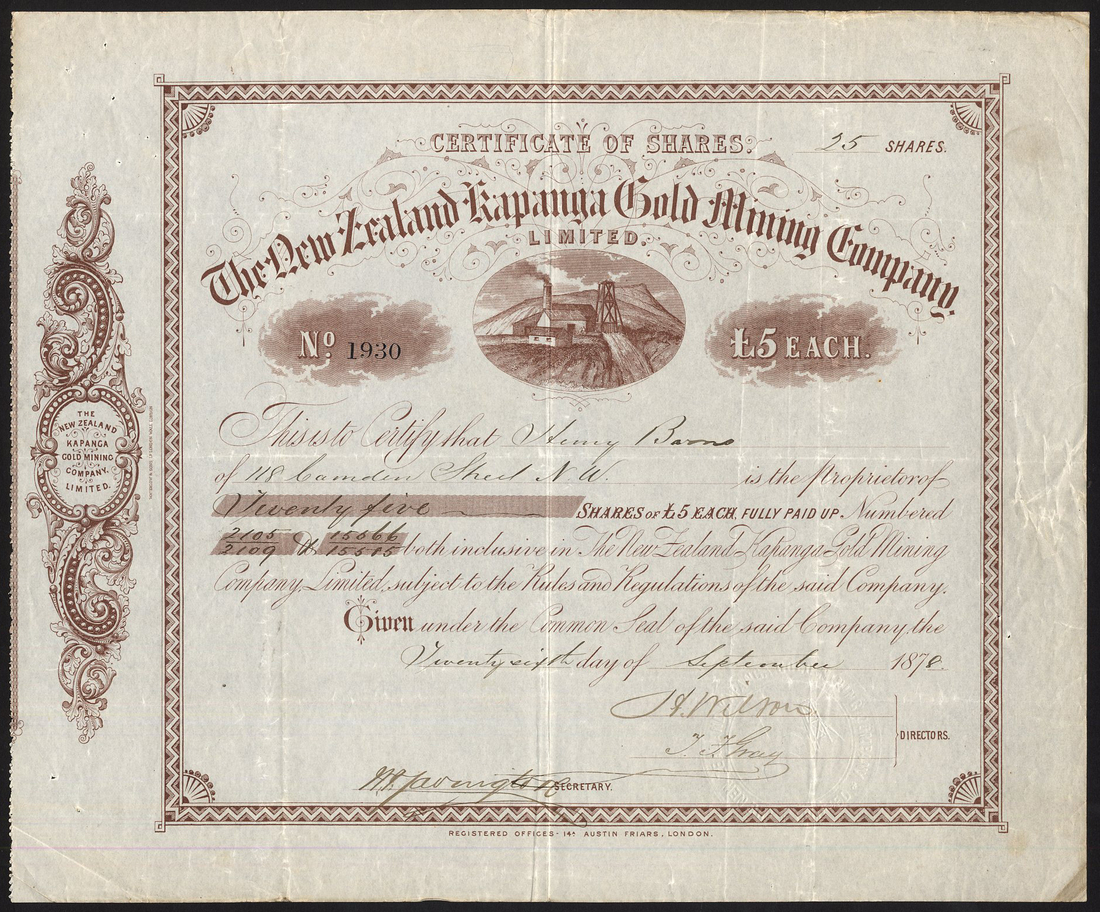 CERTIFICATE OF SHARES. 25 SHARES.
The New Zealand Kapanga Gold Mining Company
LIMITED.
No 1930
£5 EACH.
THE
NEW ZEALAND
KAPANGA
GOLD MINING
COMPANY,
LIMITED.
This is to Certify that Henry
of 118 Camden Street N.W. is the Proprietor of
Twenty five SHARES OF £5 EACH, FULLY PAID UP Numbered
2105 15566
2109 & 15585 both inclusive in The New Zealand Kapanga Gold Mining
Company, Limited, subject to the Rules and Regulations of the said Company.
Given under the Common Seal of the said Company, the
Twenty sixth day of September 1878.
H. Wilson
T. J. Gray
DIRECTORS.
SECRETARY.
REGISTERED OFFICES· 14A AUSTIN FRIARS, LONDON.